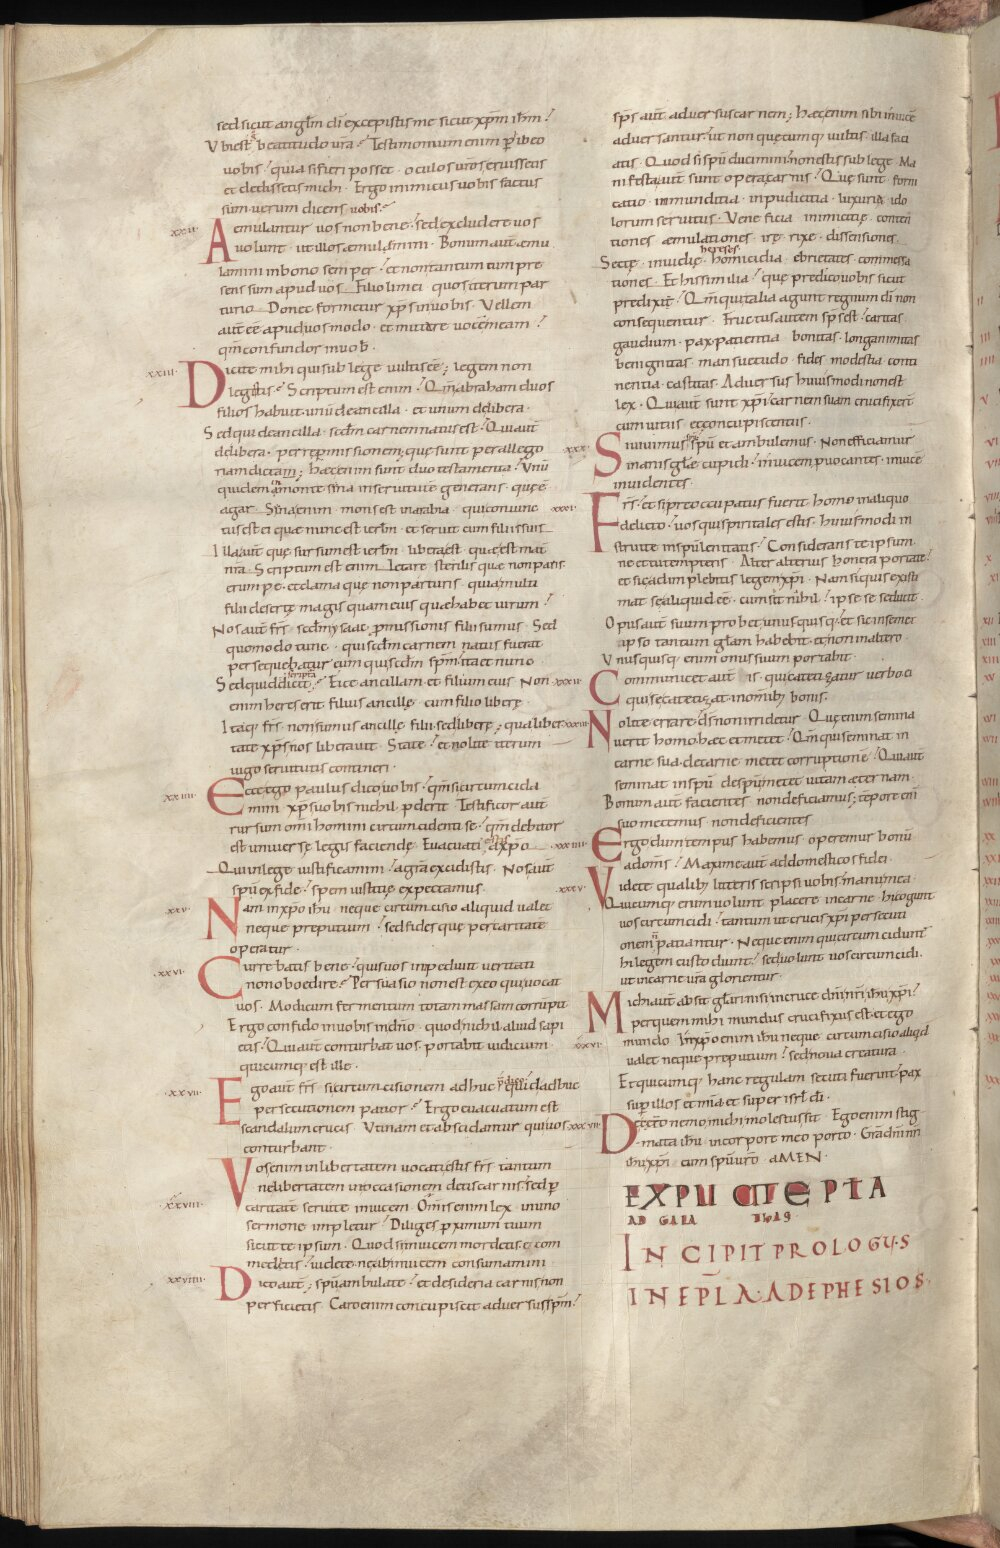 sed sicut angl̄m dī excepistis me sicut xp̄m ihm̄?
Vbi est beatitudo vr̄a? Testimonium enim ꝑhibeo
uobis? quia si fieri posset. oculos ur̄os eruissetis
et dedissetis michi. Ergo inimicus uobis factus
sum uerum dicens uobis?
xxii. Aemulantur uos non bene? sed excludere uos
uolunt. ut illos aemulamini. Bonum aut̄ aemu
lamini in bono semper? et non tantum cum pre
sens sum apud uos. Filioli mei. quos iterum par
turio. Donec formetur xp̄s in uobis. Vellem
aut̄ eē apud uos modo. et mutare uocem meam?
qm̄ confundor in uob̄.
xxiii. Dicite mihi qui sub lege uultis eē; legem non
legistis? Scriptum est enim? Qm̄ abraham duos
filios habuit. unū de ancilla. et unum de libera.
Sed qui de ancilla. scdm̄ carnem natus est? Qui aut̄
de libera. per repromissionem; que sunt per allego
riam dictam; haec enim sunt duo testamenta? Vnū
quidem a monte sina in seruitute generans. que ē
agar. Sina enim mons est in arabia. qui coniunc
tus est ei quae nunc est ierlm̄. et seruit cum filiis suis
Illa aut̄ que sursum est ierlm̄. libera est. que est mat̄
nr̄a. Scriptum est enim. Letare sterilis quae non paris
erumpe. et clama quae non parturis. quia multi
filii deserte magis quam eius quae habet uirum?
Nos aut̄ fr̄s. scdm̄ ysaac. ꝓmissionis filii sumus. Sed
quomodo tunc. qui scdm̄ carnem natus fuerat
persequebatur eum qui scdm̄ spm̄. ita et nunc.
Sed quid dicit scriptura? Eice ancillam et filium eius. Non
enim heres erit filius ancille. cum filio libere.
Itaq; fr̄s. non sumus ancille filii sed libere; qua liber
tate xp̄s nos liberauit. State? et nolite iterum
iugo seruitutis contineri.
xxiiii. Ecce ego paulus dico uobis. qm̄ si circumcida
mini xp̄s uobis nichil ꝓderit. Testificor aut̄
rursum omi homini circumcidenti se. qm̄ debitor
est uniuerse legis faciende. Euacuati estis a xp̄o
Qui in lege iustificamini. a gr̄a excidistis. Nos aut̄
spū ex fide? spem iustitie expectamus.
xxv. Nam in xp̄o ihū neque circumcisio aliquid ualet
neque preputium? sed fides que per caritate
operatur.
xxvi. Currebatis bene? quis uos impediuit ueritati
non oboedire? Persuasio non est ex eo qui uocat
uos. Modicum fermentum totam massam corrūpit
Ergo confido in uobis in dn̄o. quod nichil aliud sapi
etis? Qui aut̄ conturbat uos. portabit iudicium
quicumq; est ille.
xxvii. Ego aut̄ fr̄s si circumcisionem adhuc predico quid adhuc
persecutionem patior? Ergo euacuatum est
scandalum crucis. Vtinam et abscidantur qui uos
conturbant.
xxviii. Vos enim in libertatem uocati estis fr̄s. tantum
ne libertatem in occasionem detis carnis? sed ꝑ
caritate seruite inuicem. Om̄is enim lex in uno
sermone impletur? Diliges ꝓximum tuum
sicut te ipsum. Quod si inuicem mordetis. et com
meditis? uidete ne ab inuicem consumamini
xxviiii. Dico aut̄; spū ambulate? et desideria carnis non
perficietis. Caro enim concupiscit aduersus spm̄?
sps̄ aut̄ aduersus carnem; haec enim sibi inuicē
aduersantur. ut non quecumq; uultis. illa faci
atis. Quod si spū ducimini? non estis sub lege. Ma
nifesta aut̄ sunt opera carnis? Que sunt. forni
catio. inmunditia. inpudicitia. luxuria. ido
lorum seruitus. Veneficia. inimicitie. conten
tiones. aemulationes. ire. rixe. dissensiones.
Secte. inuidie. hereses. homicidia. ebrietates. commessa
tiones. Et his similia? que predico uobis sicut
predixi? Qm̄ qui talia agunt regnum dī non
consequentur. Fructus autem sps̄ est? caritas.
gaudium. pax. patientia. bonitas. longanimitas
benignitas. mansuetudo. fides. modestia. conti
nentia. castitas. Aduersus huiusmodi non est
lex. Qui aut̄ sunt xp̄i? carnem suam crucifixert̄
cum uitiis et concupiscentiis.
xxx. Si uiuimus spū spū et ambulemus. Non efficiamur
inanis gl̄ae cupidi? inuicem ꝓuocantes. inuicē
inuidentes.
xxxi. Fr̄s. et si preoccupatus fuerit homo in aliquo
delicto? uos qui spiritales estis. huiusmodi in
struite in spū lenitatis? Considerans te ipsum
ne et tu tempteris. Alter alterius honera portate?
et sic adimplebitis legem xp̄i. Nam si quis existi
mat se aliquid eē. cum sit nihil? ipse se seducit.
Opus aut̄ suum probet unusquisq;. et sic in semet
ipso tantum gl̄am habebit. et non in altero.
Vnusquisq; enim onus suum portabit.
xxxii. Communicet aut̄ is. qui catecizatur uerbo. ei
qui se catecizat in omnib; bonis.
xxxiii. Nolite errare. dš non irridetur. Que enim semina
uerit homo. haec et metet? Qm̄ qui seminat in
carne sua. de carne metet corruptionē? Qui aut̄
seminat in spū. de spū metet uitam aeternam.
Bonum aut̄ facientes non deficiamus; tempore enī
suo metemus non deficientes
xxxiiii. Ergo dum tempus habemus. operemur bonū
ad om̄s? Maxime aut̄ ad domesticos fidei.
xxxv. Videte qualib; litteris scripsi uobis? manu mea.
Quicumq; enim uolunt placere in carne. hi cogunt
uos circumcidi? tantum ut crucis xp̄i persecuti
onem patiantur. Neque enim qui circumcidunt̄
hi legem custodiunt? sed uolunt uos circumcidi.
ut in carne ur̄a glorientur.
xxxvi. Michi aut̄ absit gl̄ari nisi in cruce dn̄i nr̄i ihū xp̄i?
per quem mihi mundus crucifixus est. et ego
mundo. In xp̄o enim ihū neque circumcisio aliqd
ualet neque preputium? sed noua creatura.
Et quicumq; hanc regulam secuti fuerint? pax
sup̄ illos et mīa et super isrl̄ dī.
xxxvii. De cetero nemo michi molestus sit. Ego enim stig
mata ihū in corpore meo porto. Grā dn̄i nr̄i
ihū xp̄i cum spū ur̄o. AMEN.
EXPLICIT EPTA
AD GALA THAS.
INCIPIT PROLOGUS
IN EPLA. AD EPHESIOS.